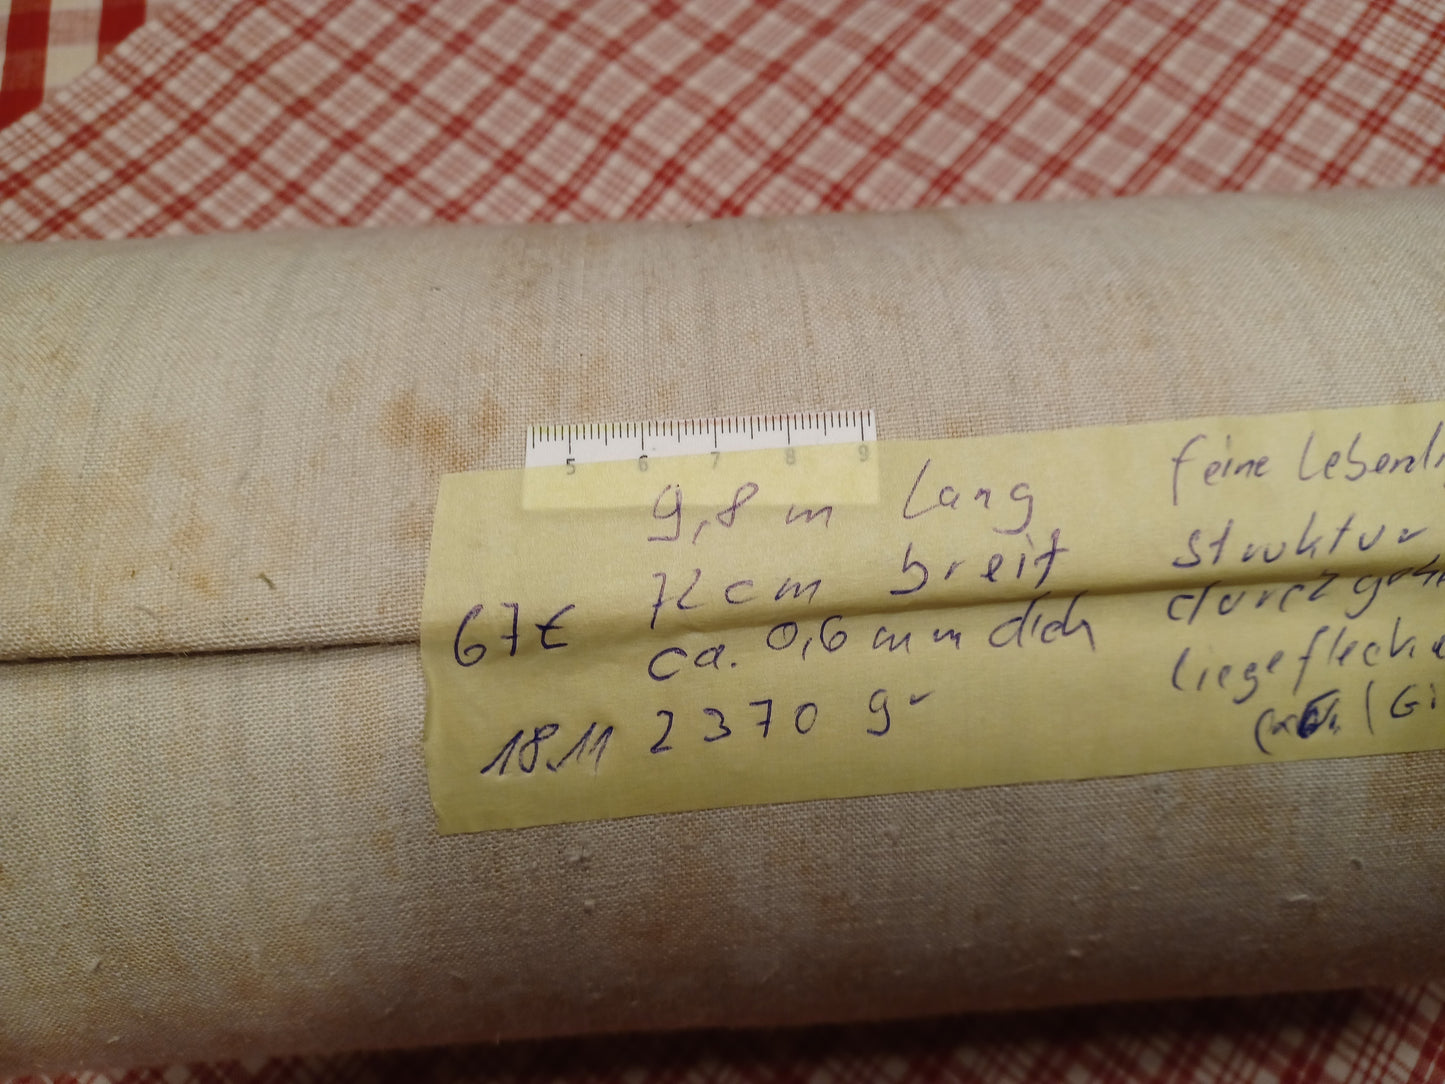 5 6 7 8 9
9,8 m lang
72 cm breit
67€
ca. 0,6 mm dick
18.11
2370 gr
feine lebendi
struktur
liegefleck